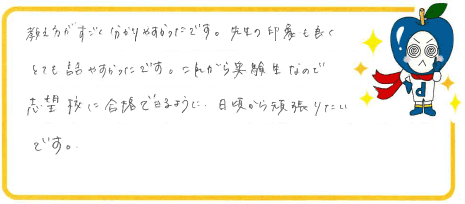 教え方がすごく分かりやすかったです。先生の印象も良く
とても話やすかったです。これから受験生なので
志望校に合格できるように、日頃から頑張りたい
です。
d